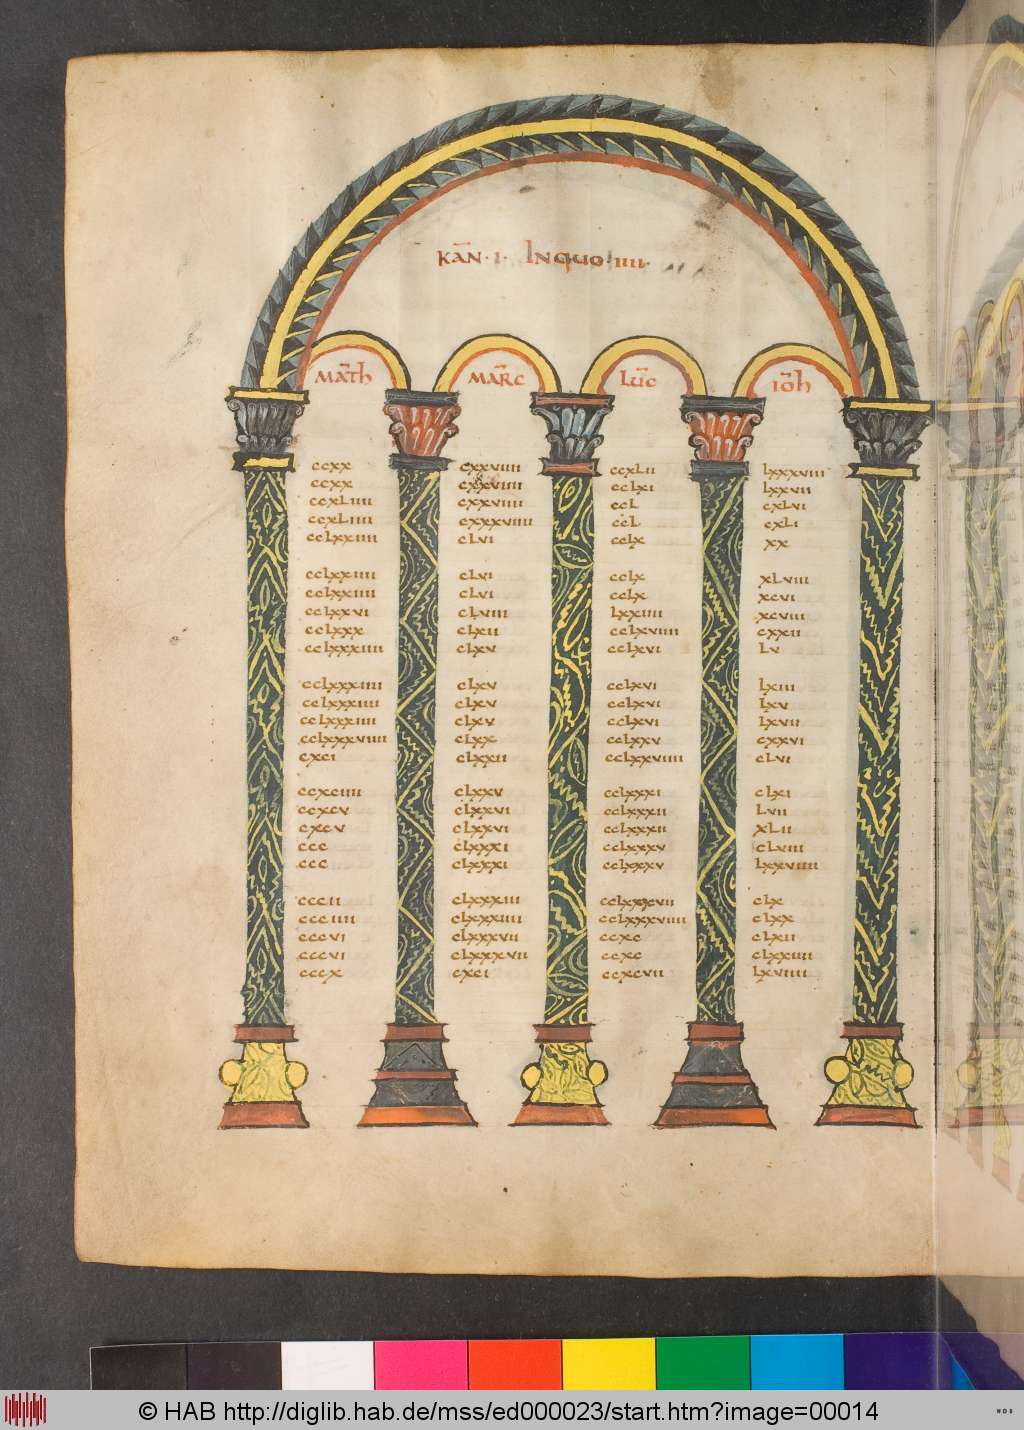 KAN · I · IN QUO IIII ·
MATH MARC LUC IOH
ccxx cxxviiii ccxlii lxxxviii
ccxx cxxviiii cclxi lxxvii
ccxliiii cxxviiii ccl cxlvi
ccxliiii cxxxviiii ccl cxli
cclxxiiii clvi cclx xx
cclxxiiii clvi cclx xlviii
cclxxiiii clvi cclx xcvi
cclxxvi clviii lxxiiii xcviii
cclxxx clxii cclxviiii cxxii
cclxxxiiii clxv cclxvi lv
cclxxxiiii clxv cclxvi lxiii
cclxxxiiii clxv cclxvi lxv
cclxxxiiii clxv cclxvi lxvii
cclxxxviiii clxx cclxxv cxxvi
cxci clxxii cclxxviiii clvi
ccxciiii clxxv cclxxxi clxi
ccxcv clxxvi cclxxxii lvii
cxcv clxxvi cclxxxii xlii
ccc clxxxi cclxxxv clviii
ccc clxxxi cclxxxv lxxviiii
cccii clxxxiii cclxxxvii clx
ccciiii clxxxiiii cclxxxviiii clxx
cccvi clxxxvii ccxc clxii
cccvi clxxxvii ccxc clxxiiii
cccx cxci ccxcvii lxviiii
© HAB http://diglib.hab.de/mss/ed000023/start.htm?image=00014
WDB